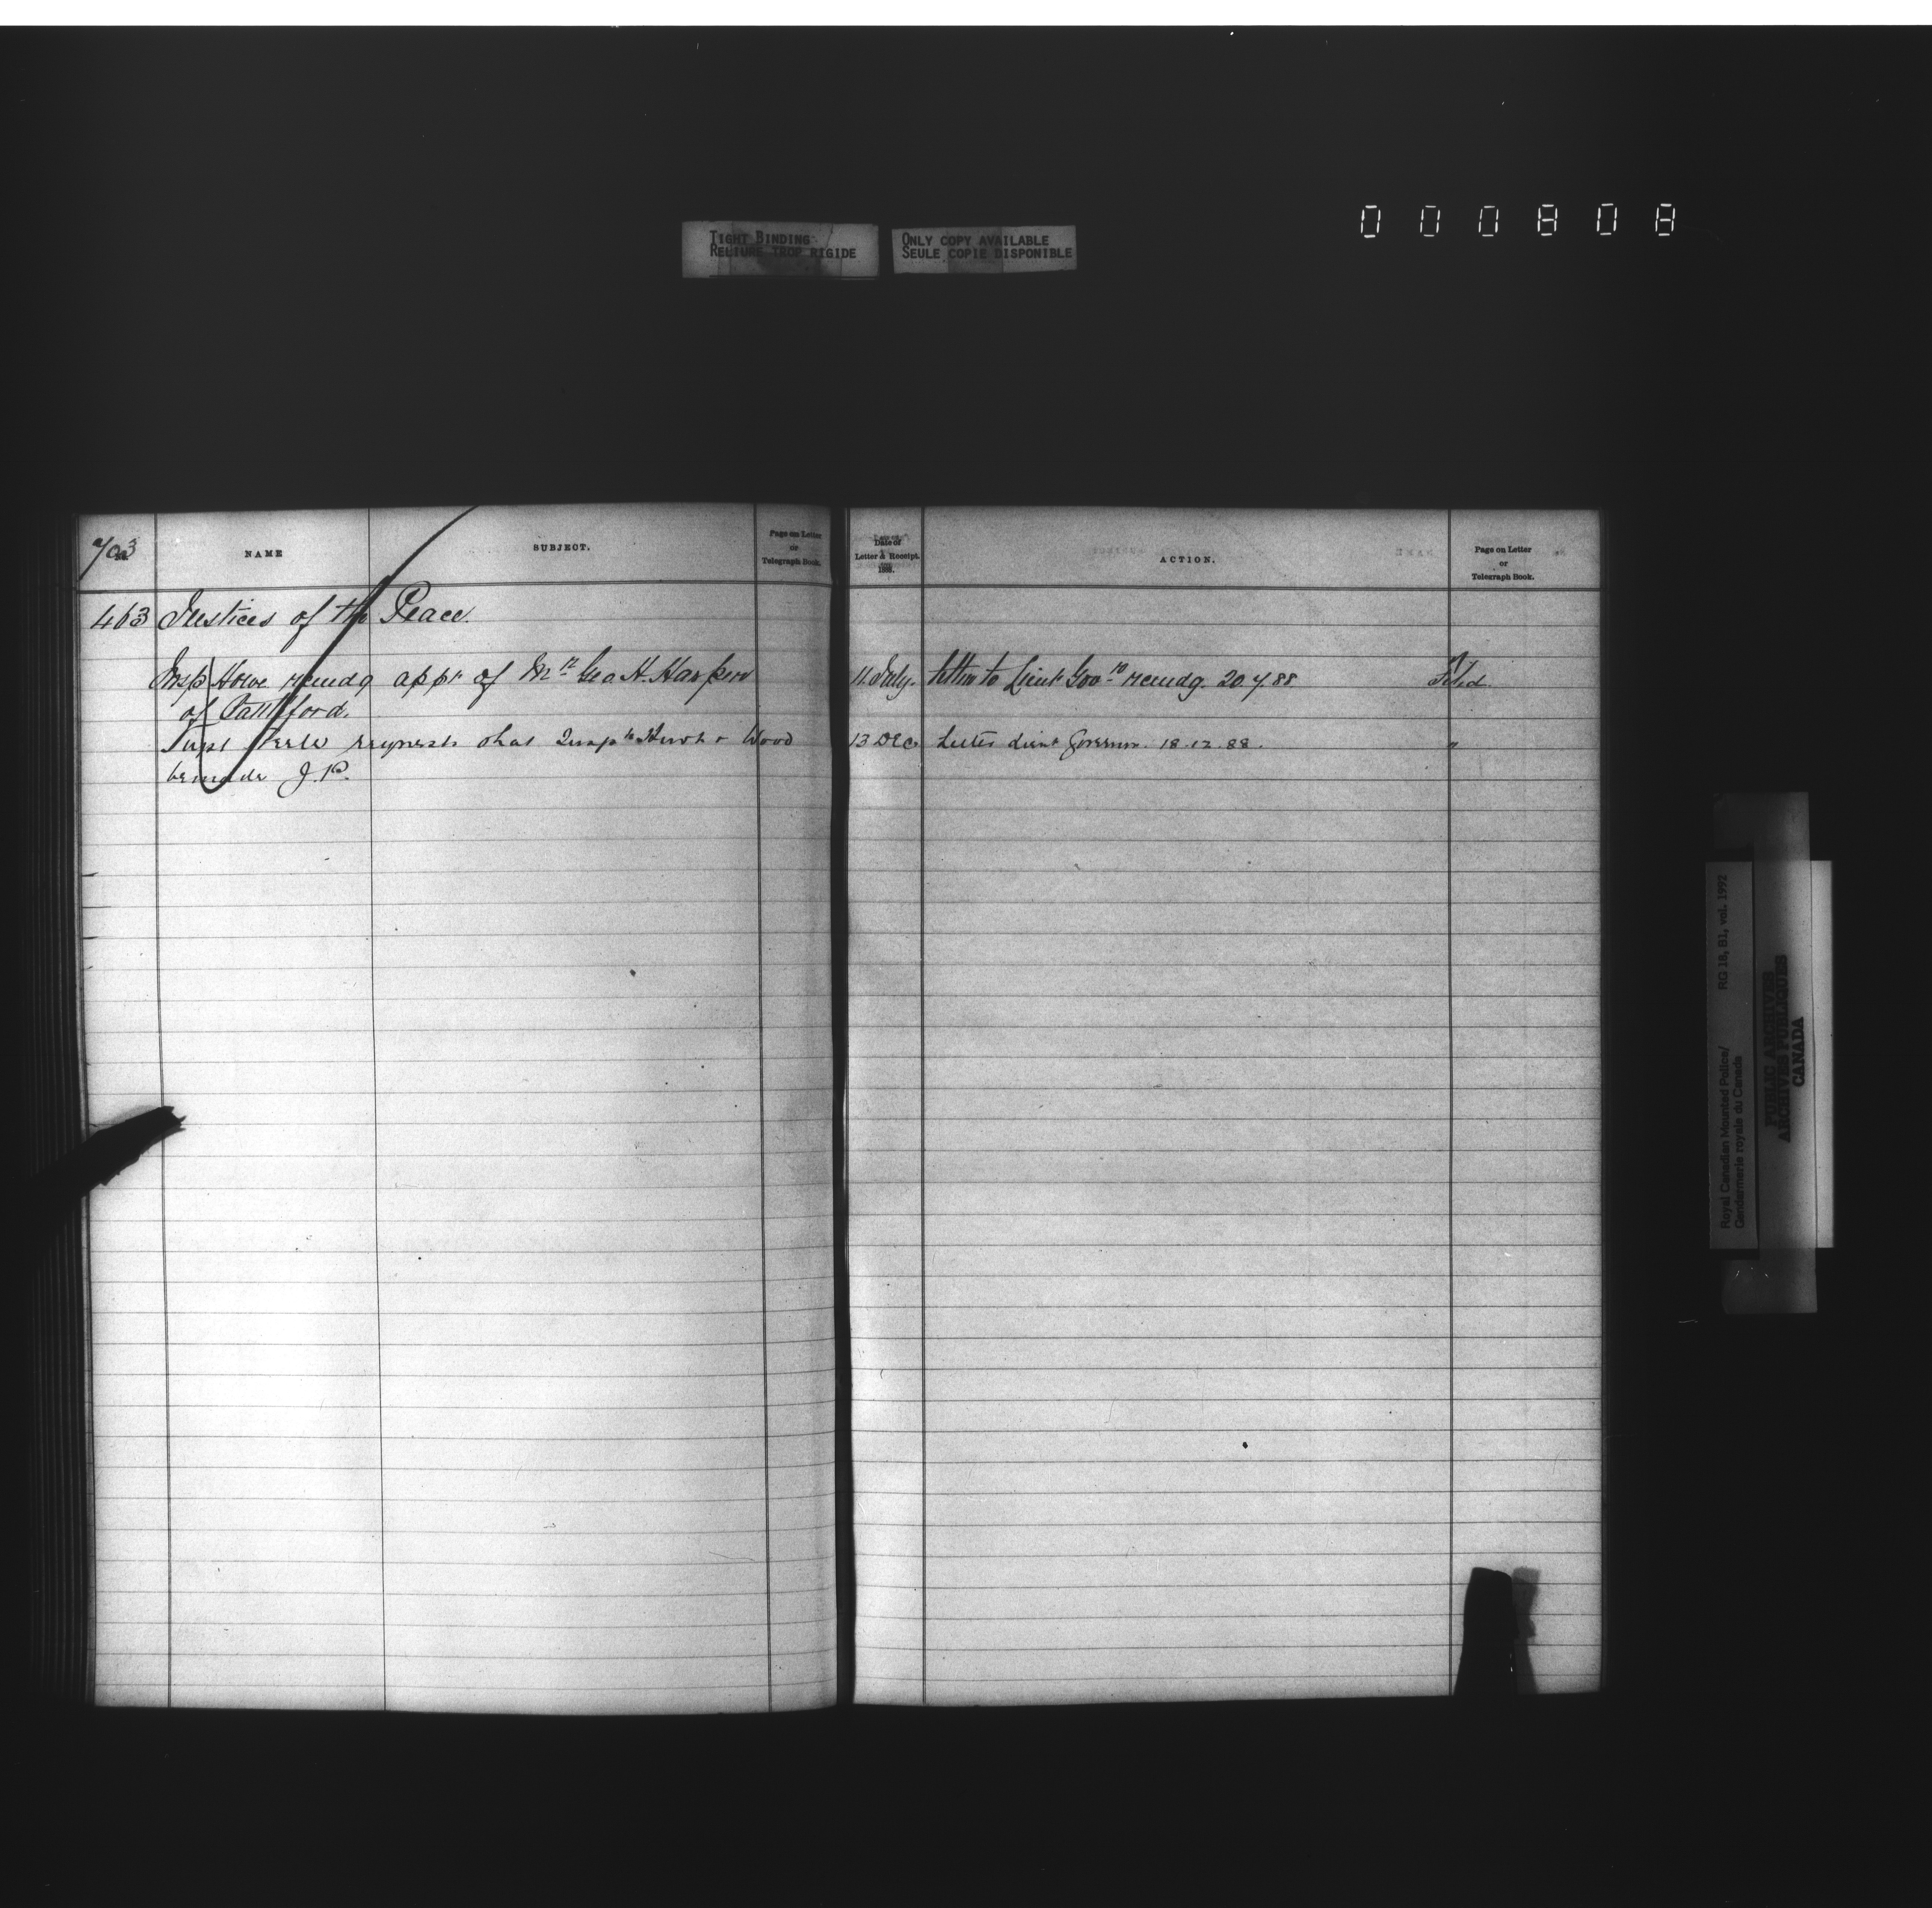 000808
TIGHT BINDING
RELIURE TROP RIGIDE
ONLY COPY AVAILABLE
SEULE COPIE DISPONIBLE
703
NAME
SUBJECT.
Page on Letter
or
Telegraph Book.
Date of
Letter & Receipt.
188 .
ACTION.
Page on Letter
or
Telegraph Book.
463 Justices of the Peace.
Insp Howe recmdg appt of Mr. Geo H. Harper 11. July. letter to Lieut Gov recmdg. 20.7.88 Filed.
of Battleford.
Supt Steele requests that Insp rs & Wood 13 Dec. Letter Lieut Governor. 18.12.88. "
be made J.P.
Royal Canadian Mounted Police/ RG 18, B1, vol. 1992
Gendarmerie royale du Canada
PUBLIC ARCHIVES
ARCHIVES PUBLIQUES
CANADA